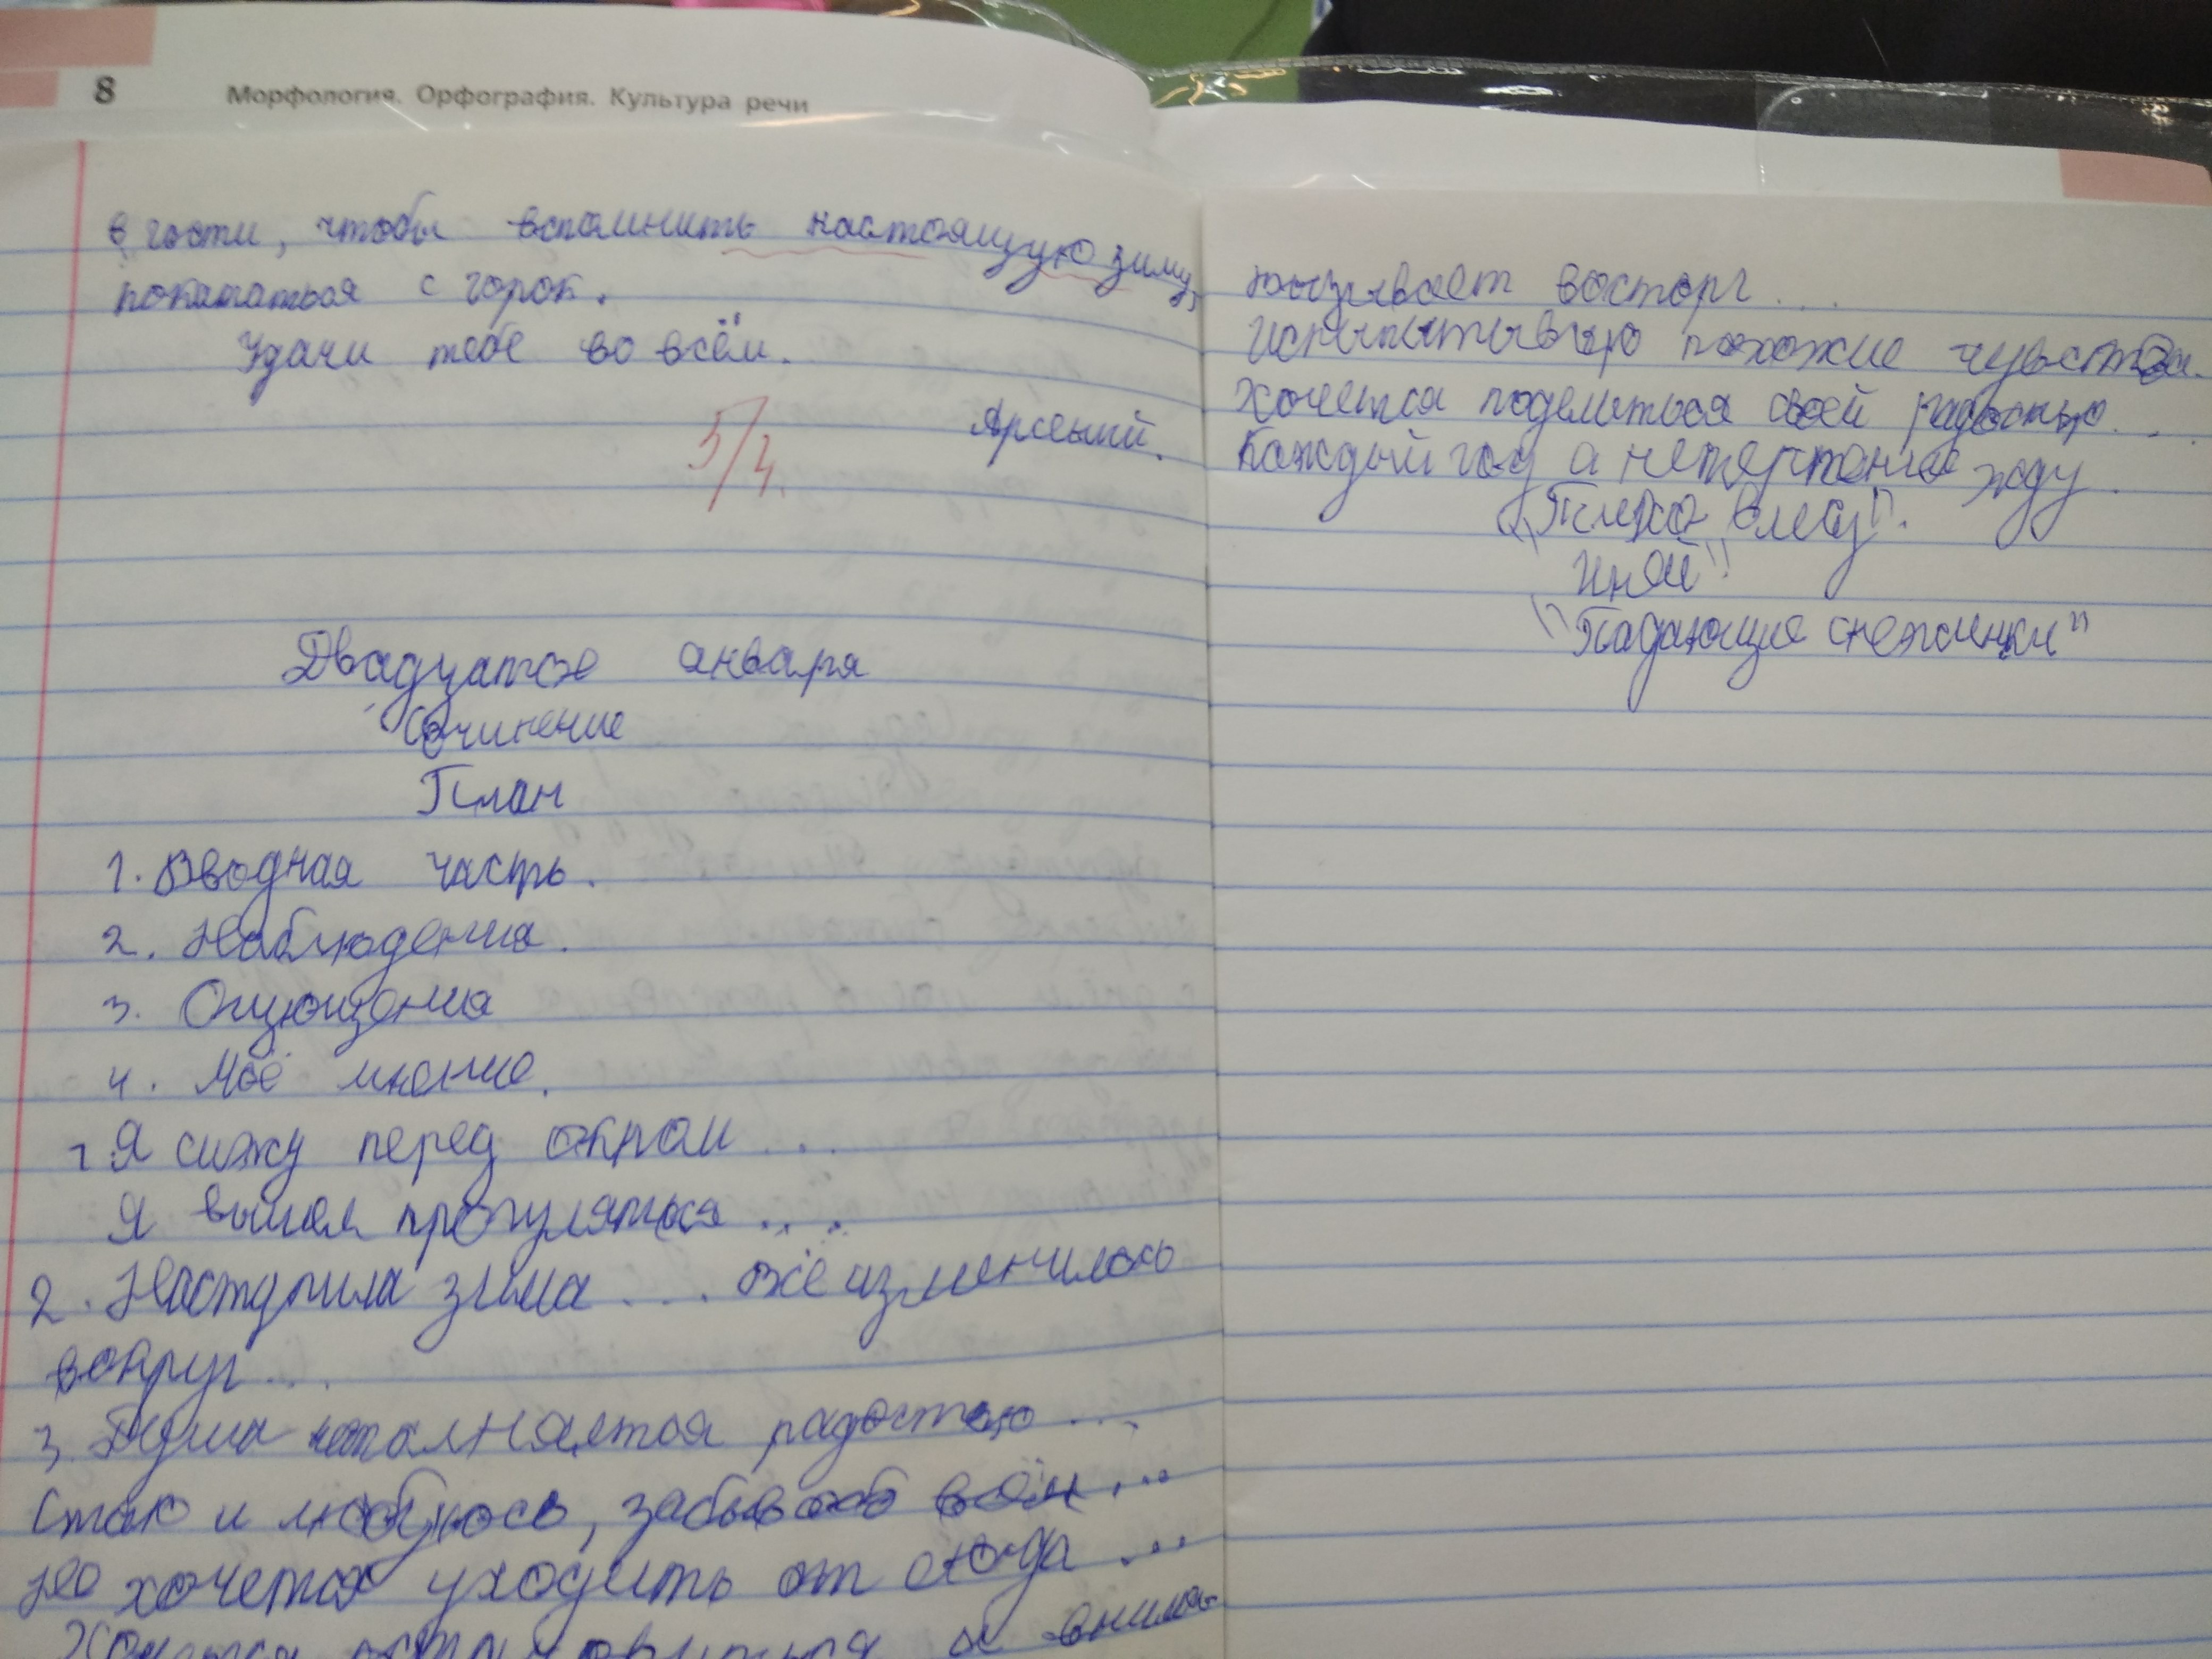 8 Морфология. Орфография. Культура речи
в гости, чтобы вспомнить настоящую зиму,
покататься с горок.
Удачи тебе во всём.
Арсений.
5/4.
Двадцатое января
Сочинение
План
1. Вводная часть.
2. Наблюдения.
3. Ощущения
4. Моё мнение.
1 Я сижу перед окном ...
Я вышел прогуляться ...
2. Наступила зима ... всё изменилось
вокруг ...
3. Душа наполняется радостью ...
Стою и любуюсь, забыв обо всём ...
Не хочется уходить от сюда ...
Хочется остановиться и
вызывает восторг ...
Испытываю похожие чувства.
Хочется поделиться своей радостью ...
Каждый год с нетерпение жду.
"Тихо в лесу".
Иней"
"Падающие снежинки"